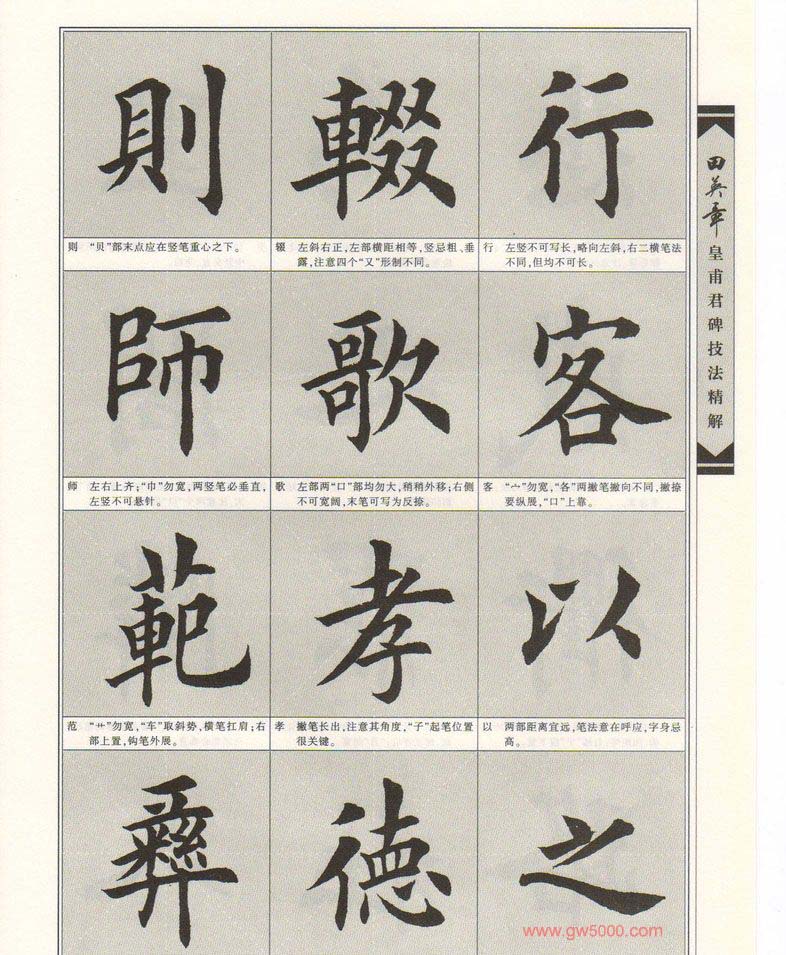 則 輟 行
则 “贝”部末点应在竖笔重心之下。
辍 左斜右正,左部横距相等,竖忌粗、垂
露,注意四个“又”形制不同。
行 左竖不可写长,略向左斜,右二横笔法
不同,但均不可长。
師 歌 客
师 左右上齐;“巾”勿宽,两竖笔必垂直,
左竖不可悬针。
歌 左部两“口”部均勿大,稍稍外移;右侧
不可宽阔,末笔可写为反捺。
客 “宀”勿宽,“各”两撇笔撇向不同,撇捺
要纵展,“口”上靠。
範 孝 以
范 “艹”勿宽,“车”取斜势,横笔扛肩;右
部上置,钩笔外展。
孝 撇笔长出,注意其角度,“子”起笔位置
很关键。
以 两部距离宜远,笔法意在呼应,字身忌
高。
彝 德 之
田英章
皇甫君碑技法精解
www.gw5000.com